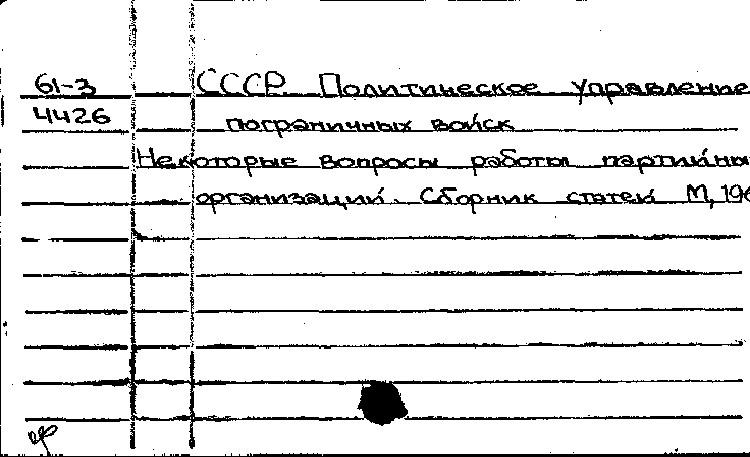 61-3 СССР. Политическое управление
4426 пограничных войск
Некоторые вопросы работы партийны
организаций. Сборник статей М, 196